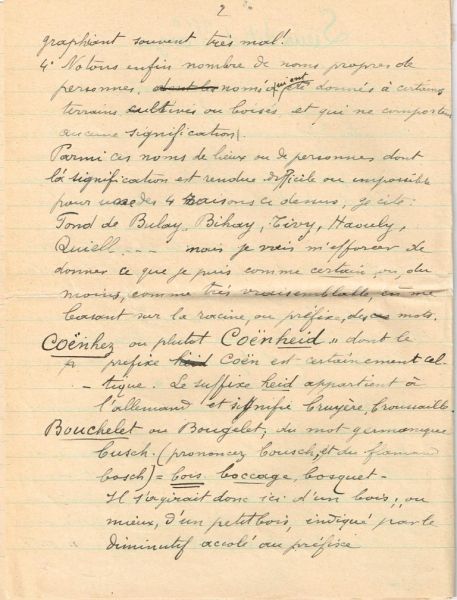 2
graphiant souvent très mal!
4° Notons enfin nombre de noms propres de
personnes, dont les noms qui ont été donnés à certains
terrains cultivés ou boisés et qui ne comportent
aucune signification.
Parmi ces noms de lieux ou de personnes dont
la signification est rendue difficile ou impossible
pour une des 4 raisons ci dessus, je cite:
Fond de Bulay, Bihay, Tivy, Haouly,
Quiell... mais je vais m'efforcer de
donner ce que je puis comme certain, ou, du
moins, comme très vraisemblable, en me
basant sur la racine, ou préfixe, des mots.
Coënhez ou plutôt Coënheid, dont le
préfixe heid Coën est certainement cel-
-tique. Le suffixe heid appartient à
l'allemand et signifie bruyère, broussaille.
Bouchelet ou Bougelet; du mot germanique
busch. (prononcez bousch, et du flamand
bosch) = bois, boccage, bosquet-
Il s'agirait donc ici d'un bois, ou
mieux, d'un petit bois, indiqué par le
diminutif accolé au préfixe